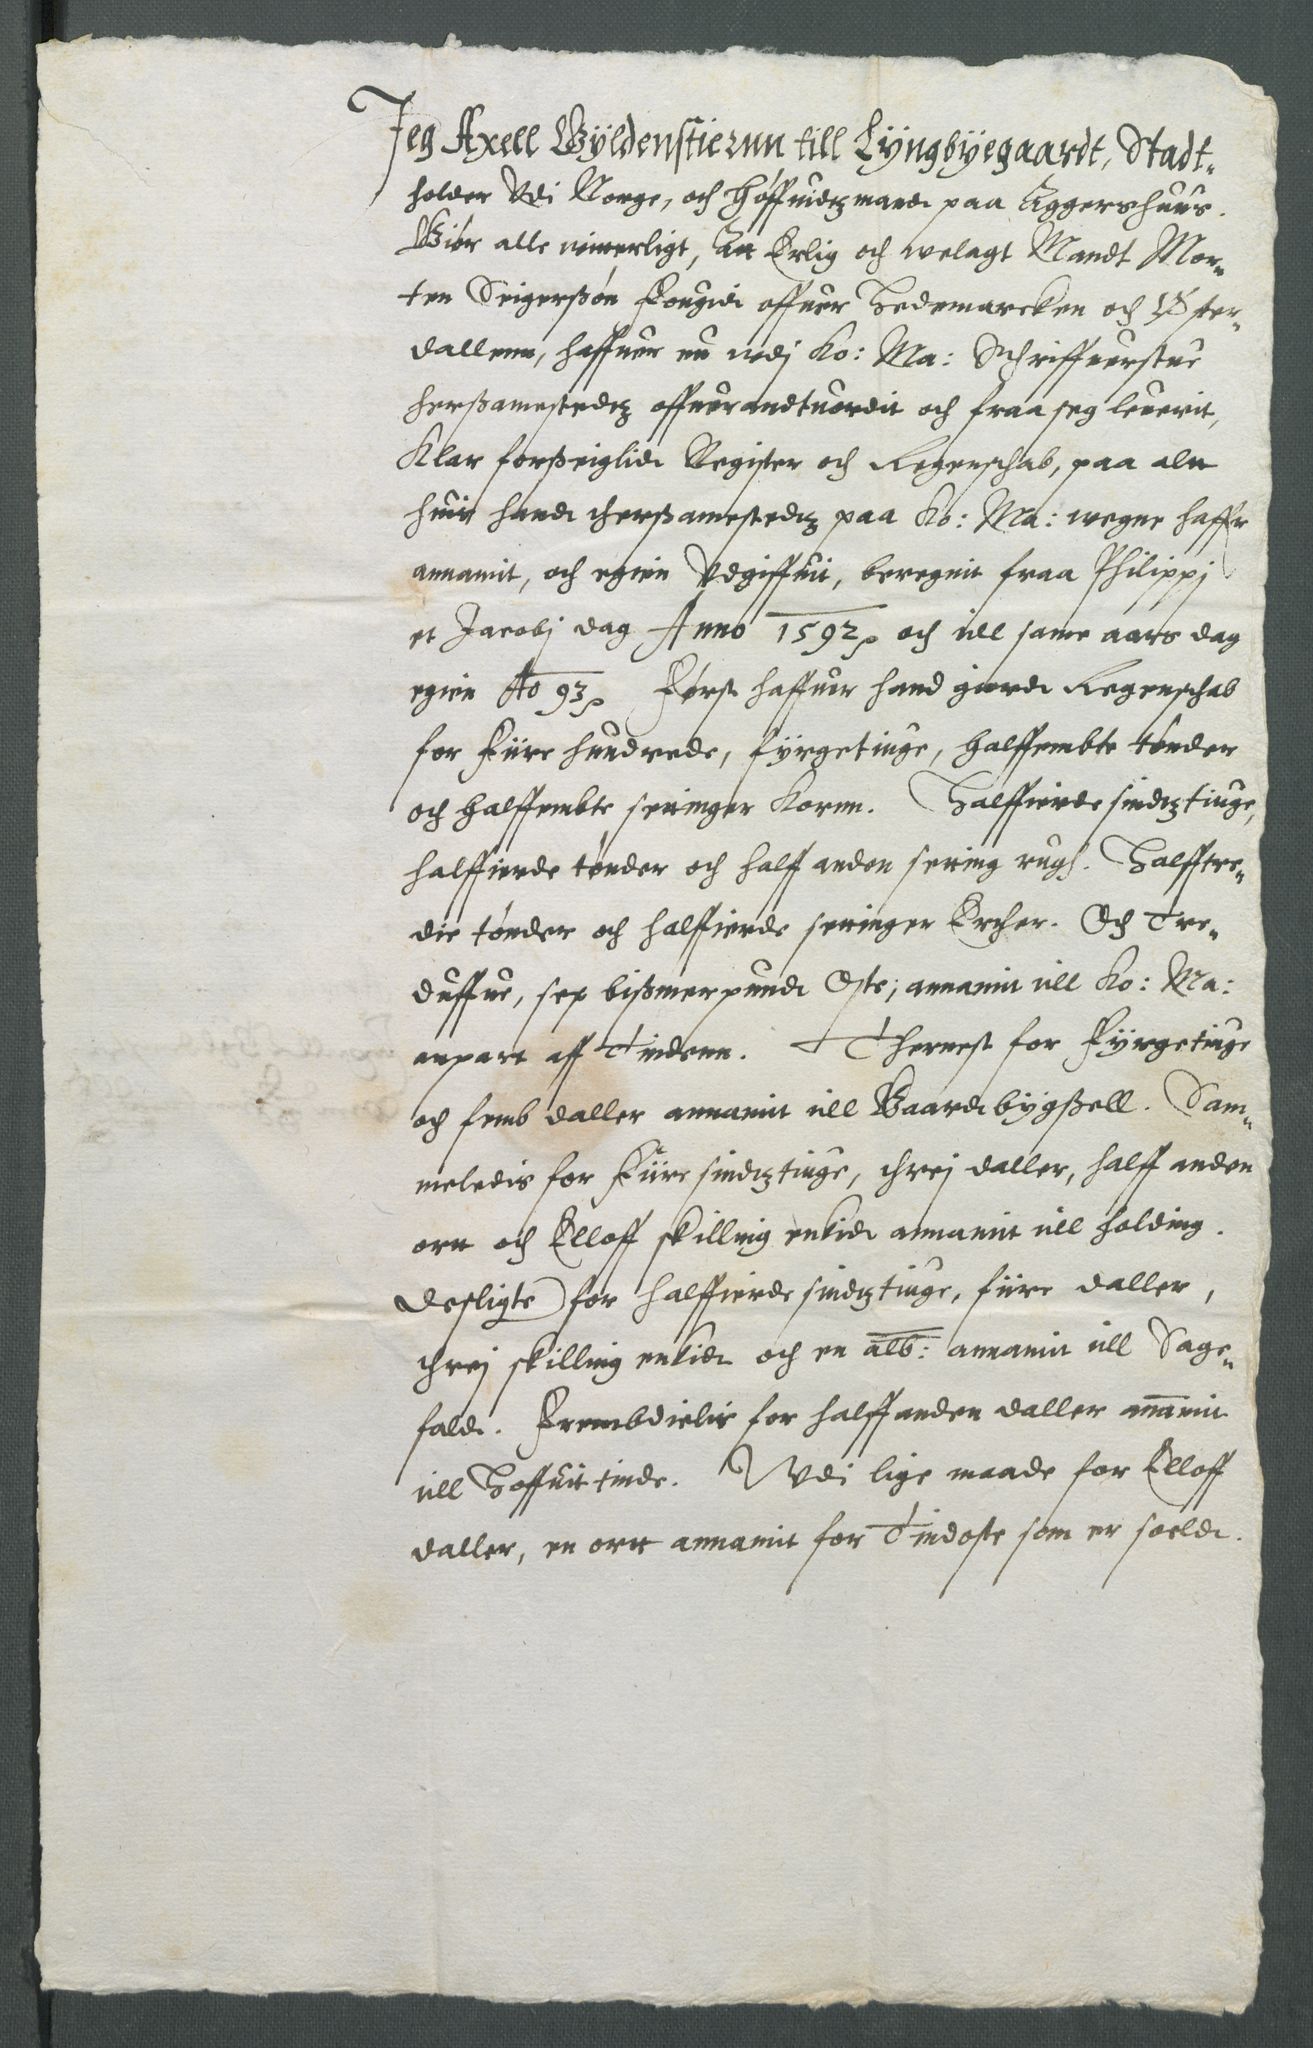 Jeg Axell Gÿldenstiernn till Lÿngbÿegaardt, Stadt-
holder Vdi Norge, och Høffuidtzmand paa Aggershuus.
Giør alle vitterligt, Att Erlig och welagt Mandt Mor-
ten Seigerssøn Fougidt offuer Hedemarcken och Øster-
dallenn, haffuer nu vdj Ko: Ma: Schriffuerstue
herssamestedtz offuerandtuordit och fraa seg leuerit,
Klar forsseiglidt Register och Regenschab, paa altt
huis hand therssamestedtz paa Ko: Ma: wegne haffr
annamit, och egien Vdgiffuit, beregnit fraa Philippj
et Jacobj dag Anno 1592 och till same aars dag
egien Ao 93 Først haffuer hand giordt Regenschab
for Fiire hundrede, fÿrgetiuge, halffembte tønder
och halffembte settinger Kornn. Halffierdesindtztiuge,
halffierde tønder och halff anden setting rugh. Halfftre-
die tønder och halffierde settinger Ercher. Och Tre-
duffue, sex bissmerpundt Oste, annamit till Ko: Ma:
anpart aff Tindenn. Thernest for Fÿrgetiuge
och femb daller annamit till Gaardtbÿgssell. Sam-
meledis for Fiiresindtztiuge, threj daller, halff anden
ortt och Elloff skilling enkidt annamit till holding.
Desligte for halffierdesindtztiuge, fiire daller,
threj skilling enkidt och en alb: annamit till Sage-
fald. Frembdielis for halffanden daller anamit
till Hoffuit tinde. Vdi lige maade for Elloff
daller, en ortt annamit for Tindoste som er soeldt.